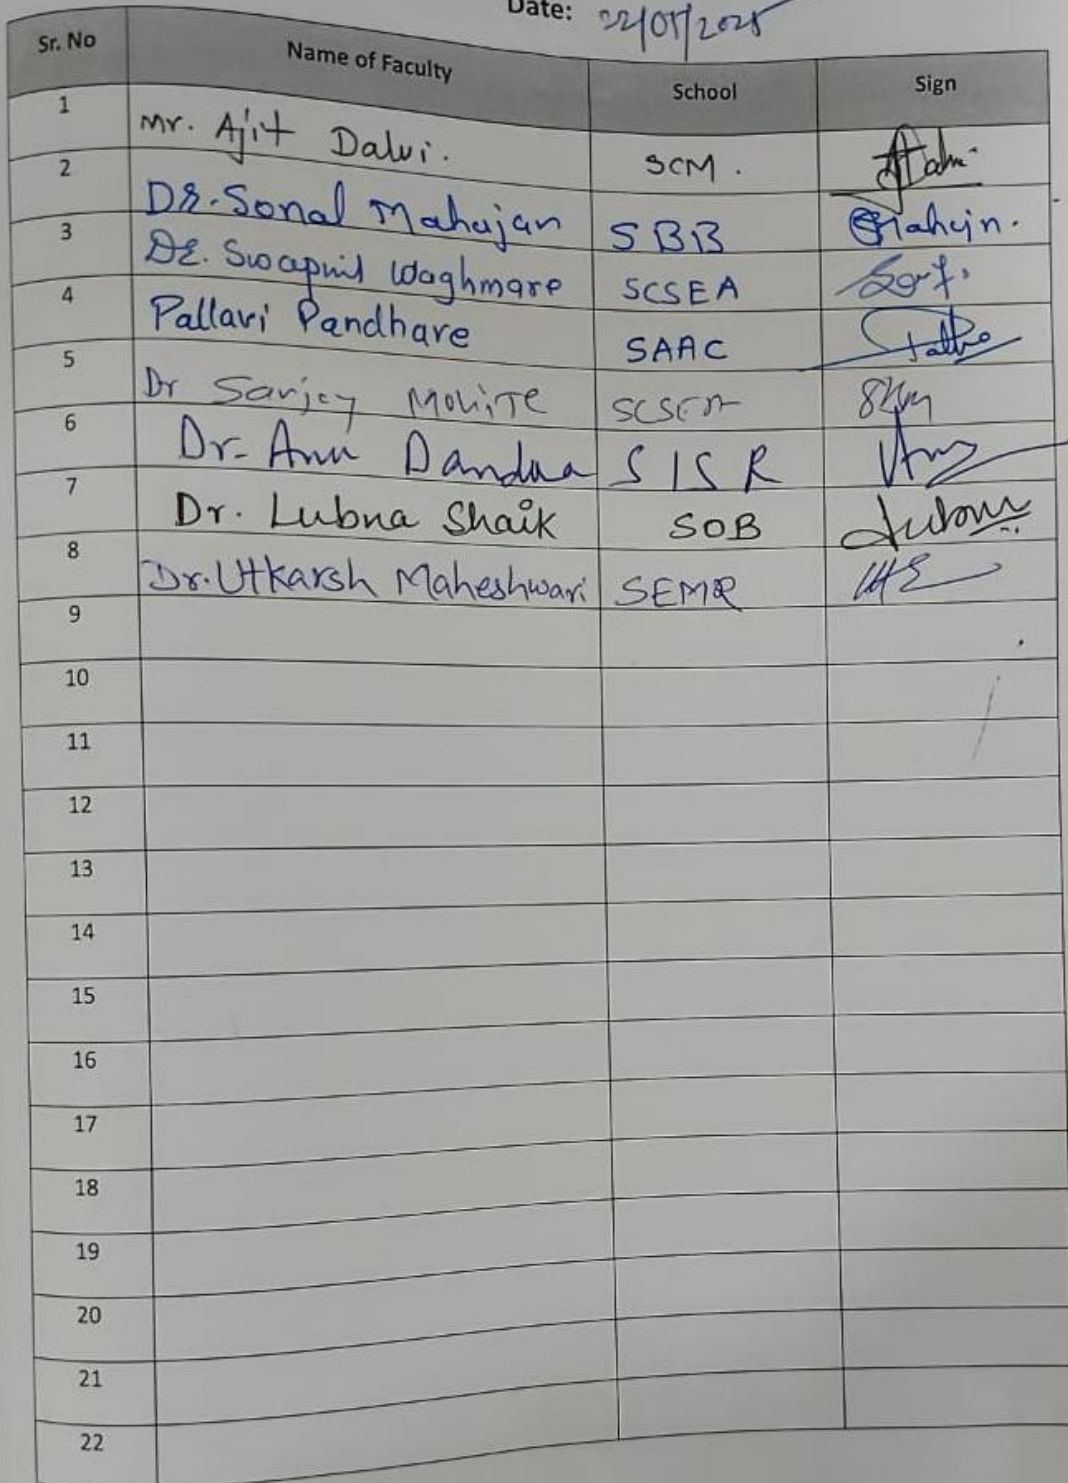 Date: 22/05/2025
Sr. No Name of Faculty School Sign
1 Mr. Ajit Dalvi. SCM.
2 Dr. Sonal Mahajan SBB
3 Dr. Swapnil Waghmare SCSEA
4 Pallavi Pandhare SAAC
5 Dr Sanjay Mohite SCSEA
6 Dr. Anu Dandna SISR
7 Dr. Lubna Shaik SOB
8 Dr. Utkarsh Maheshwari SEMR
9
10
11
12
13
14
15
16
17
18
19
20
21
22